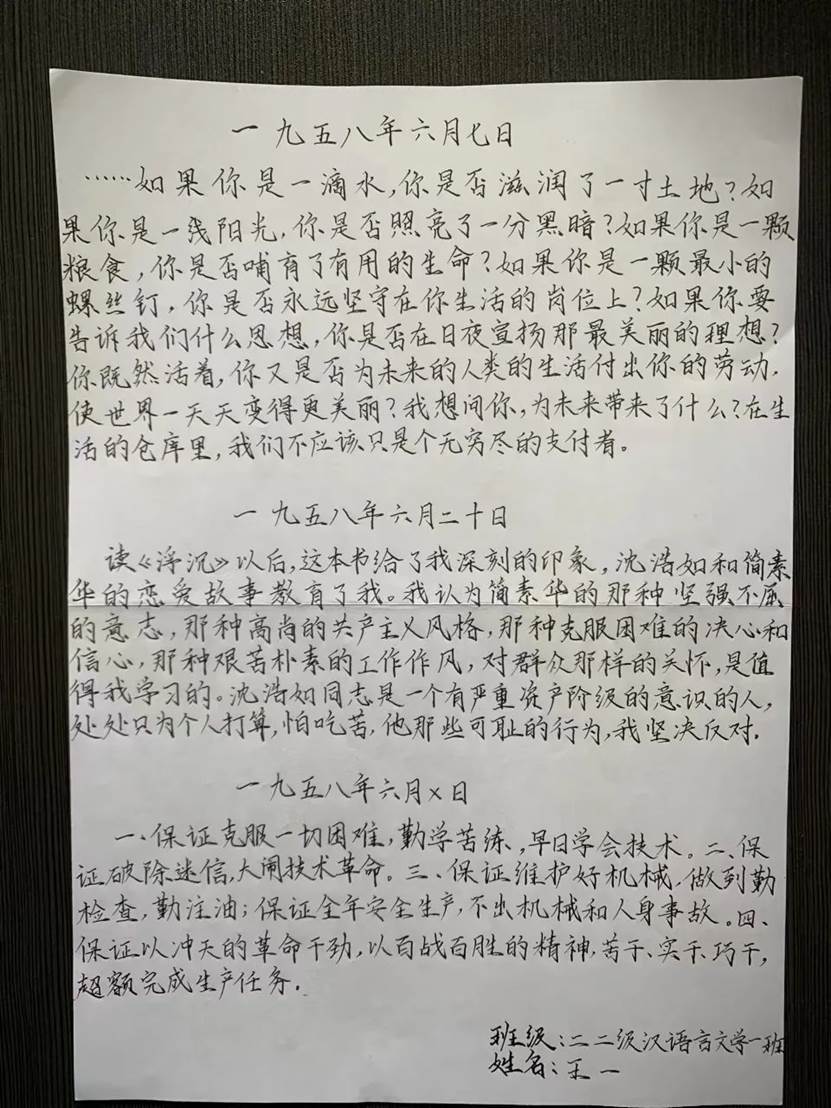 一九五八年六月七日
……如果你是一滴水,你是否滋润了一寸土地?如
果你是一线阳光,你是否照亮了一分黑暗?如果你是一颗
粮食,你是否哺育了有用的生命?如果你是一颗最小的
螺丝钉,你是否永远坚守在你生活的岗位上?如果你要
告诉我们什么思想,你是否在日夜宣扬那最美丽的理想?
你既然活着,你又是否为未来的人类的生活付出你的劳动,
使世界一天天变得更美丽?我想问你,为未来带来了什么?在生
活的仓库里,我们不应该只是个无穷尽的支付者。
一九五八年六月二十日
读《浮沉》以后,这本书给了我深刻的印象,沈浩如和简素
华的恋爱故事教育了我。我认为简素华的那种坚强不屈
的意志,那种高尚的共产主义风格,那种克服困难的决心和
信心,那种艰苦朴素的工作作风,对群众那样的关怀,是值
得我学习的。沈浩如同志是一个有严重资产阶级的意识的人,
处处只为个人打算,怕吃苦,他那些可耻的行为,我坚决反对.
一九五八年六月×日
一、保证克服一切困难,勤学苦练,早日学会技术。二、保
证破除迷信,大闹技术革命。三、保证维护好机械,做到勤
检查,勤注油;保证全年安全生产,不出机械和人身事故。四、
保证以冲天的革命干劲,以百战百胜的精神,苦干、实干、巧干,
超额完成生产任务.
班级:二二级汉语言文学一班
姓名:王一